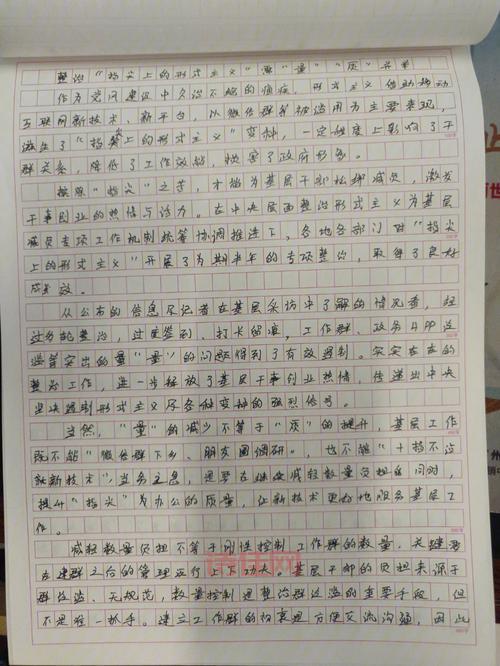 整治“指尖上的形式主义”需“量”“质”并举
作为党风建设中久治不愈的顽疾，形式主义借助移动
互联网新技术、新平台，以微信群等被滥用为主要表现，
滋生了“指尖上的形式主义”变种，一定程度上影响了干
群关系，降低了工作效能，损害了政府形象。
摆脱“指尖”之苦，才能为基层干部松绑减负，激发
干事创业的热情与活力。在中央层面整治形式主义为基层
减负专项工作机制统筹协调推进下，各地各部门对“指尖
上的形式主义”开展了为期半年的专项整治，取得了良好
成效。
从公布的信息及记者在基层采访中了解的情况看，经
过分轮整治，过度签到、打卡留痕，工作群、政务APP泛
滥等突出的量“量”的问题得到了有效遏制。实实在在的
整治工作，进一步释放了基层干事创业热情，传递出中央
坚决遏制形式主义及各种变种的强烈信号。
当然，“量”的减少不等于“质”的提升，基层工作
既不能“微信群下乡、朋友圈调研”，也不能“十指不沾
新技术”，当务之急，还要在继续减轻数量负担的同时，
提升“指尖”为办公的质量，让新技术更好地服务基层工
作。
减轻数量负担不等于刚性控制工作群的数量，关键要
在建群之后的管理运行上下功夫。基层干部的负担来源于
群泛滥、无规范，数量控制是整治群泛滥的重要手段，但
不是唯一抓手。建立工作群的初衷是方便交流沟通，因此